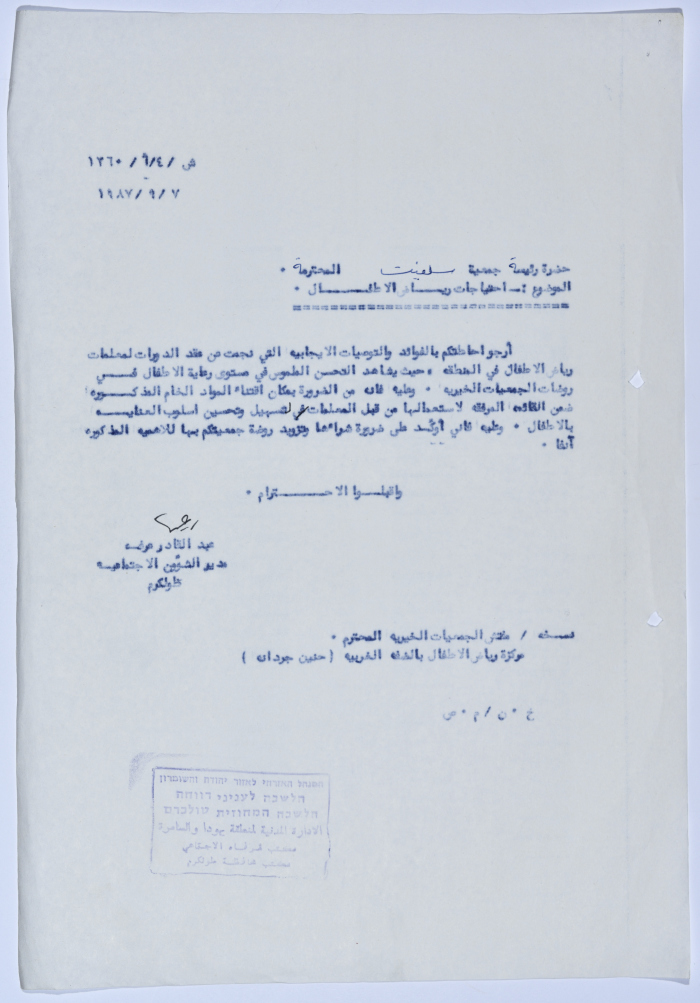 ش / ٩/٤ / ١٣٦٠
١٩٨٧/٩/٧
حضرة رئيسة جمعية سلفيت المحترمة •
الموضوع :- احتياجات ريـــاض الاطفـــــال •
أرجو احاطتكم بالفوائد والتوصيات الايجابيه التي نجمت من عقد الدورات لمعلمات
رياض الاطفال في المنطقه ، حيث يشاهد التحسن الملموس في مستوى رعاية الاطفال فـــي
روضات الجمعيات الخيريه • وعليه فانه من الضرورة بمكان اقتناء المواد الخام المذكــــوره
ضمن القائمه المرفقه لاستعمالها من قبل المعلمات في تسهيل وتحسين اسلوب العنايـــه
بالاطفال • وعليه فاني أوكّد على ضرورة شراءها وتزويد روضة جمعيتكم بها للاهميه المذكوره
آنفا •
واقبلــوا الاحـــــترام •
عبد القادر عوضـه
مدير الشؤون الاجتماعيـــه
طولكرم
نسخـــه / مفتش الجمعيات الخيريه المحترم •
مركزة رياض الاطفال بالضفه الغربيه ( حنين جردانه )
خ • ن / م • ص
המנהל האזרחי לאזור יהודה והשומרון
הלשכה לעניני רווחה
הלשכה המחוזית טולכרם
الادارة المدنية لمنطقة يهودا والسامرة
مكتب شؤون الرفاه الاجتماعي
مكتب محافظة طولكرم